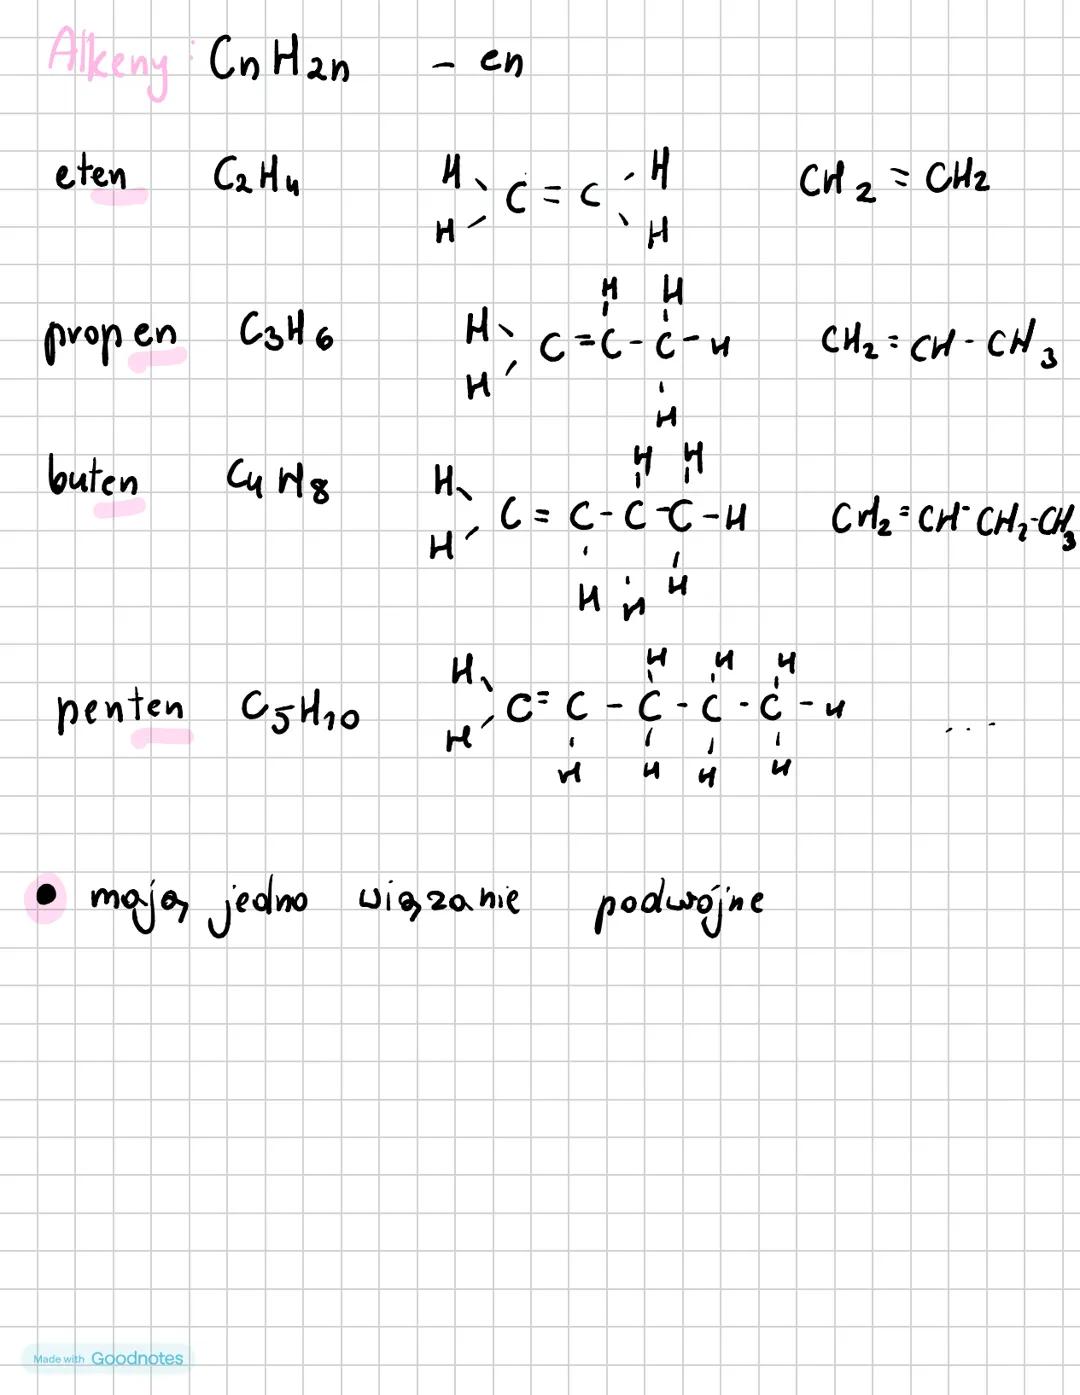 Alkeny: CnH2n - en
eten C2H4 CH2=CH2
H H
C = C
H H
propen C3H6 CH2=CH-CH3
H H
H C=C-C-H
H
H
buten C4H8 CH2=CH-CH2-CH3
H H
H C=C-C-C-H
H
H H H
penten C5H10 ...
H H H H
C=C-C-C-C-H
H
H H H H
• mają jedno wiązanie podwójne
Made with Goodnotes